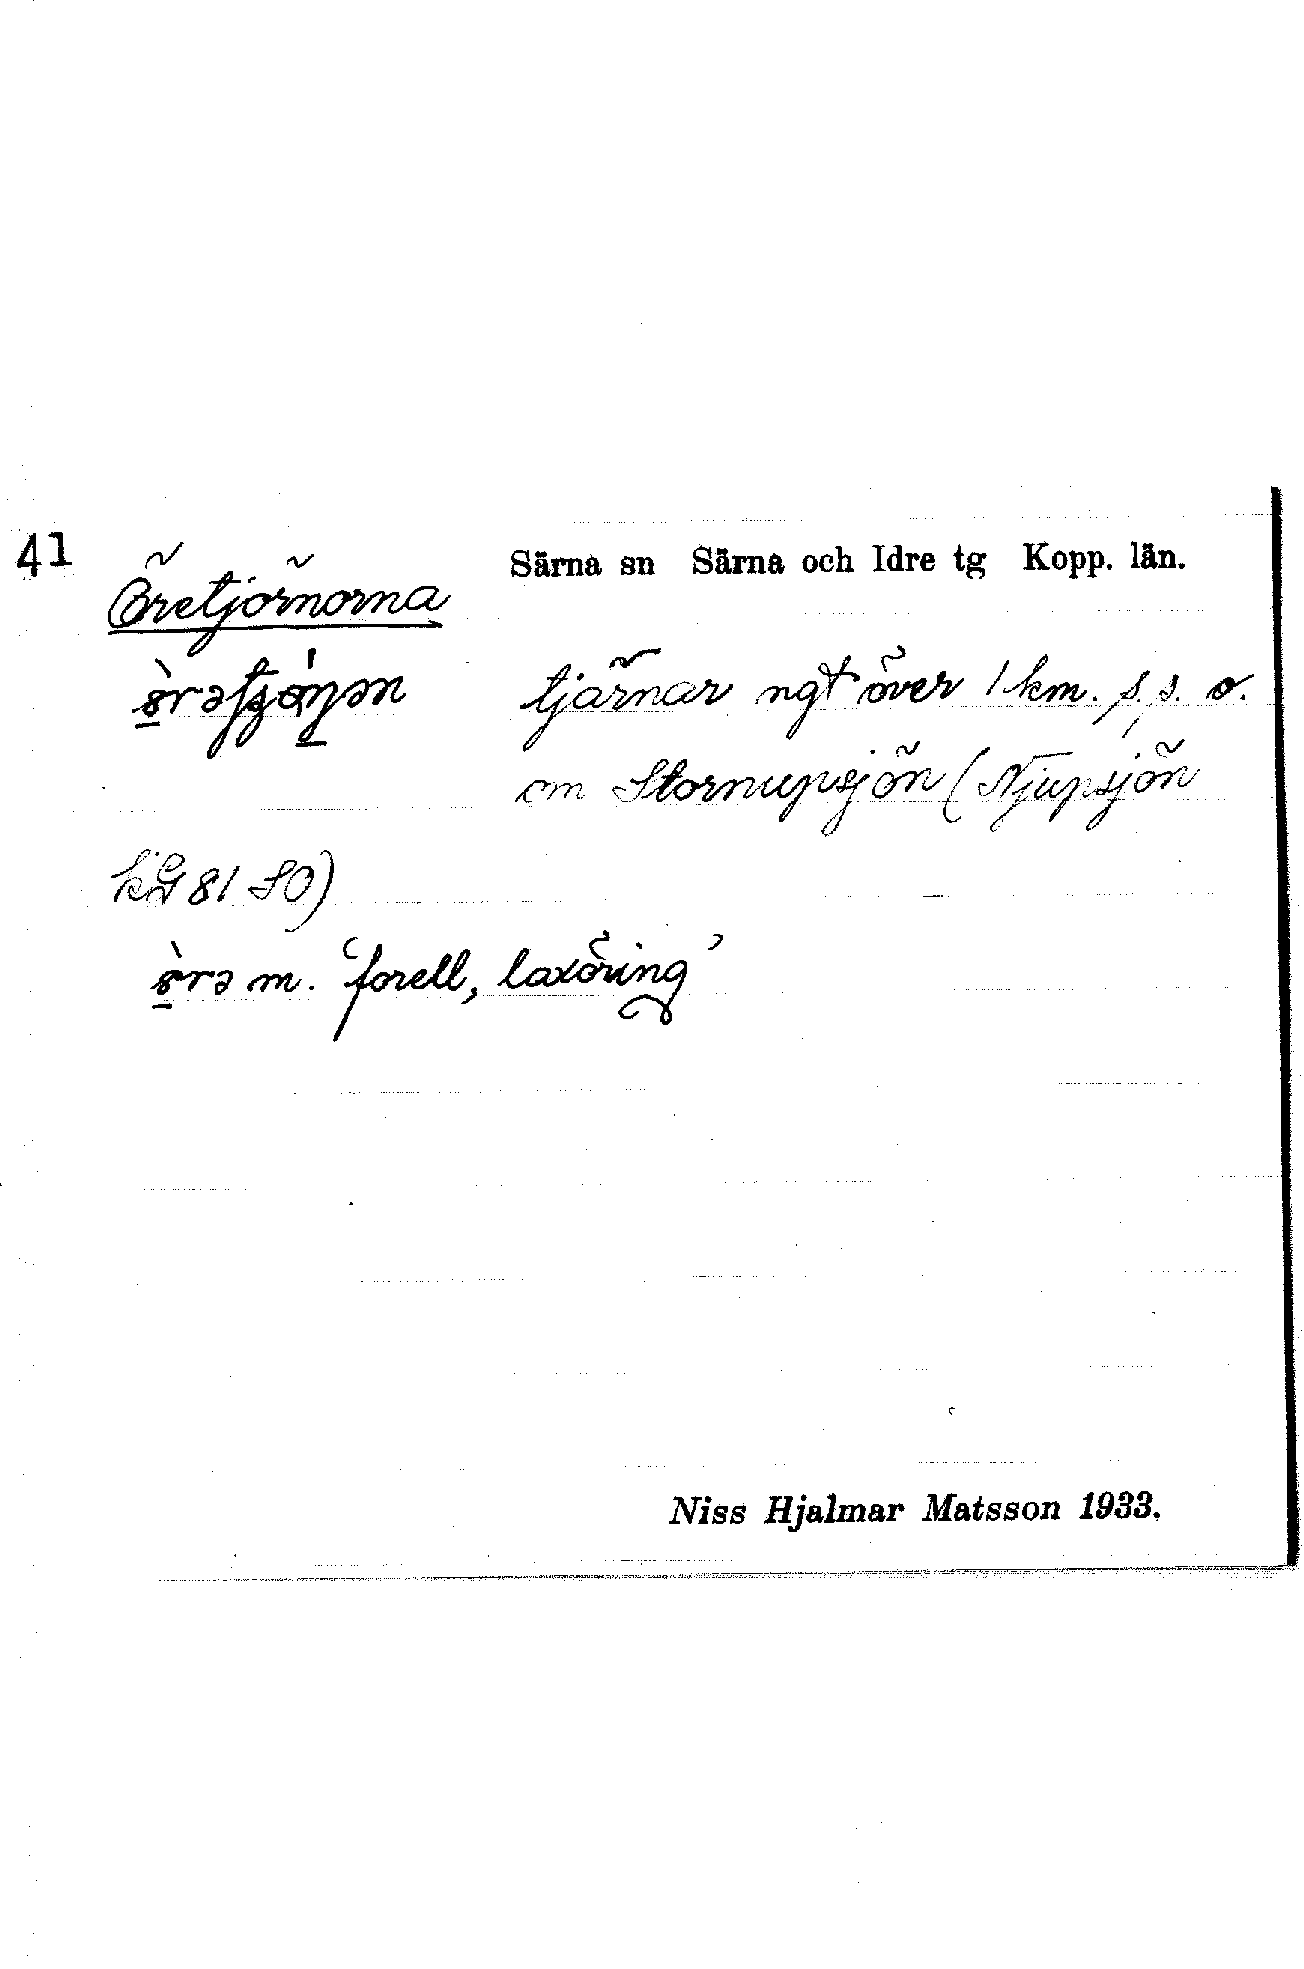 41
Särna sn Särna och Idre tg Kopp. län.
Öretjörnorna
tjärnar ngt över 1 km. s. s. o.
om Stornupsjön (Njupsjön
kG 81 SO)
m. 'forell, laxöring'
Niss Hjalmar Matsson 1933.